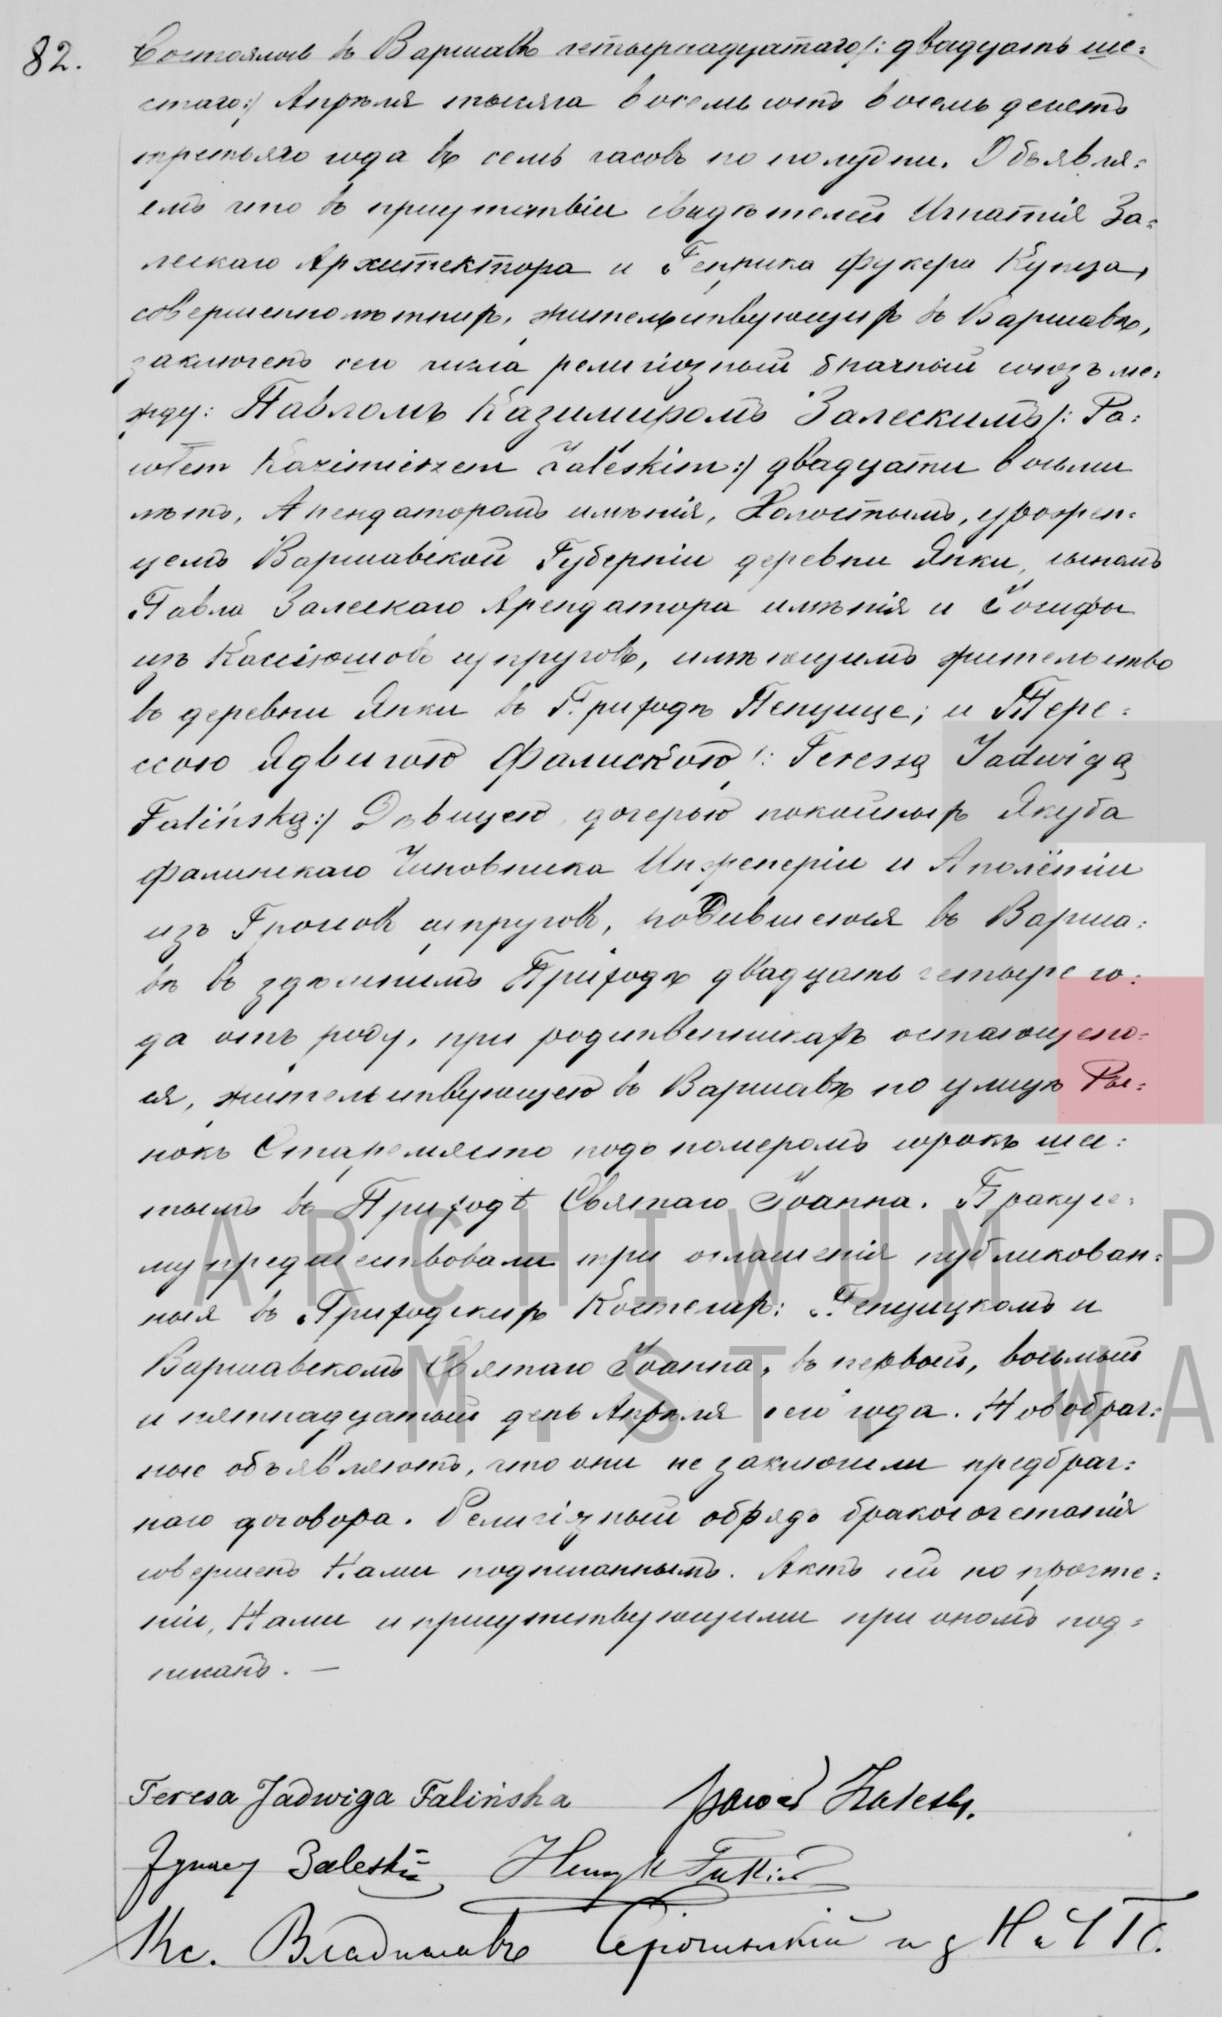 82. Состоялось въ Варшавѣ четырнадцатаго /: двадцать ше=
стаго :/ Апрѣля тысяча восемьсотъ восемьдесятъ
третьяго года въ семь часовъ по полудни. Объявля=
емъ что въ присутствіи свидѣтелей Игнатія За=
лескаго Архитектора и Генриха Фукера Купца,
совершеннолѣтнихъ, жительствующихъ въ Варшавѣ,
заключенъ сего числа религіозный брачный союзъ ме=
жду: Павломъ Казимиромъ Залескимъ /: Pa=
włem Kazimierzem Zaleskim :/ двадцати восьми
лѣтъ, Арендаторомъ имѣнія, Холостымъ, урожен=
цемъ Варшавской Губерніи деревни Янки, сыномъ
Павла Залескаго Арендатора имѣнія и Іосифы
изъ супруговъ, имѣющимъ жительство
въ деревни Янки въ Приходѣ Пенцице; и Тере=
ссою Ядвигою Фалинскою /: Teressą Jadwigą
Falińską :/ Дѣвицею, дочерью покойныхъ Якуба
Фалинскаго Чиновника Инженеріи и Аполёніи
изъ супруговъ, родившеюся въ Варша=
вѣ въ здѣшнимъ Приходѣ двадцать четыре го=
да отъ роду, при родственникахъ остающею=
ся, жительствующею въ Варшавѣ по улицѣ Ры=
нокъ Старемясто подъ номеромъ сорокъ шес=
тымъ въ Приходѣ Святаго Іоанна. Браку се=
му предшествовали три оглашенія публикован=
ныя въ Приходскихъ Костелахъ: Пенцицкомъ и
Варшавскомъ Святаго Іоанна, въ первый, восьмый
и пятнадцатый день Апрѣля сего года. Новобрач=
ные объявляютъ, что они не заключили предбрач=
наго договора. Религіозный обрядъ бракосочетанія
совершенъ Нами подписаннымъ. Актъ сей по прочте=
ніи, Нами и присутствующими при ономъ под=
писанъ. —
Teresa Jadwiga Falińska Paweł Zaleski.
Ignacy Zaleski Henryk Fukier
Кс. Владиславъ Сѣрочинскій
ARCHIWUM P
M. ST. WA